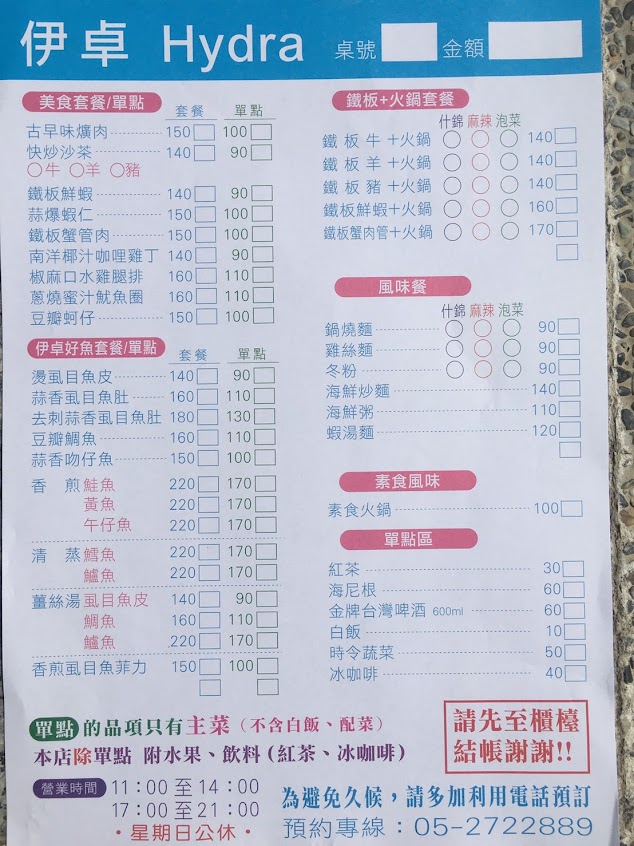 伊卓 Hydra 桌號 金額
美食套餐/單點 套餐 單點
古早味爌肉 150 100
快炒沙茶 140 90
○牛 ○羊 ○豬
鐵板鮮蝦 140 90
蒜爆蝦仁 150 100
鐵板蟹管肉 150 100
南洋椰汁咖哩雞丁 140 90
椒麻口水雞腿排 160 110
蔥燒蜜汁魷魚圈 160 110
豆瓣蚵仔 150 100
伊卓好魚套餐/單點 套餐 單點
燙虱目魚皮 140 90
蒜香虱目魚肚 160 110
去刺蒜香虱目魚肚 180 130
豆瓣鯛魚 160 110
蒜香吻仔魚 150 100
香煎 鮭魚 220 170
黃魚 220 170
午仔魚 220 170
清蒸 鱈魚 220 170
鱸魚 220 170
薑絲湯 虱目魚皮 140 90
鯛魚 160 110
鱸魚 220 170
香煎虱目魚菲力 150 100
鐵板+火鍋套餐
什錦 麻辣 泡菜
鐵板牛+火鍋 140
鐵板羊+火鍋 140
鐵板豬+火鍋 140
鐵板鮮蝦+火鍋 160
鐵板蟹肉管+火鍋 170
風味餐
什錦 麻辣 泡菜
鍋燒麵 90
雞絲麵 90
冬粉 90
海鮮炒麵 140
海鮮粥 110
蝦湯麵 120
素食風味
素食火鍋 100
單點區
紅茶 30
海尼根 60
金牌台灣啤酒 600ml 60
白飯 10
時令蔬菜 50
冰咖啡 40
單點 的品項只有主菜(不含白飯、配菜)
本店除單點 附水果、飲料(紅茶、冰咖啡)
請先至櫃檯
結帳謝謝!!
營業時間 11:00 至 14:00
17:00 至 21:00
·星期日公休·
為避免久候,請多加利用電話預訂
預約專線:05-2722889